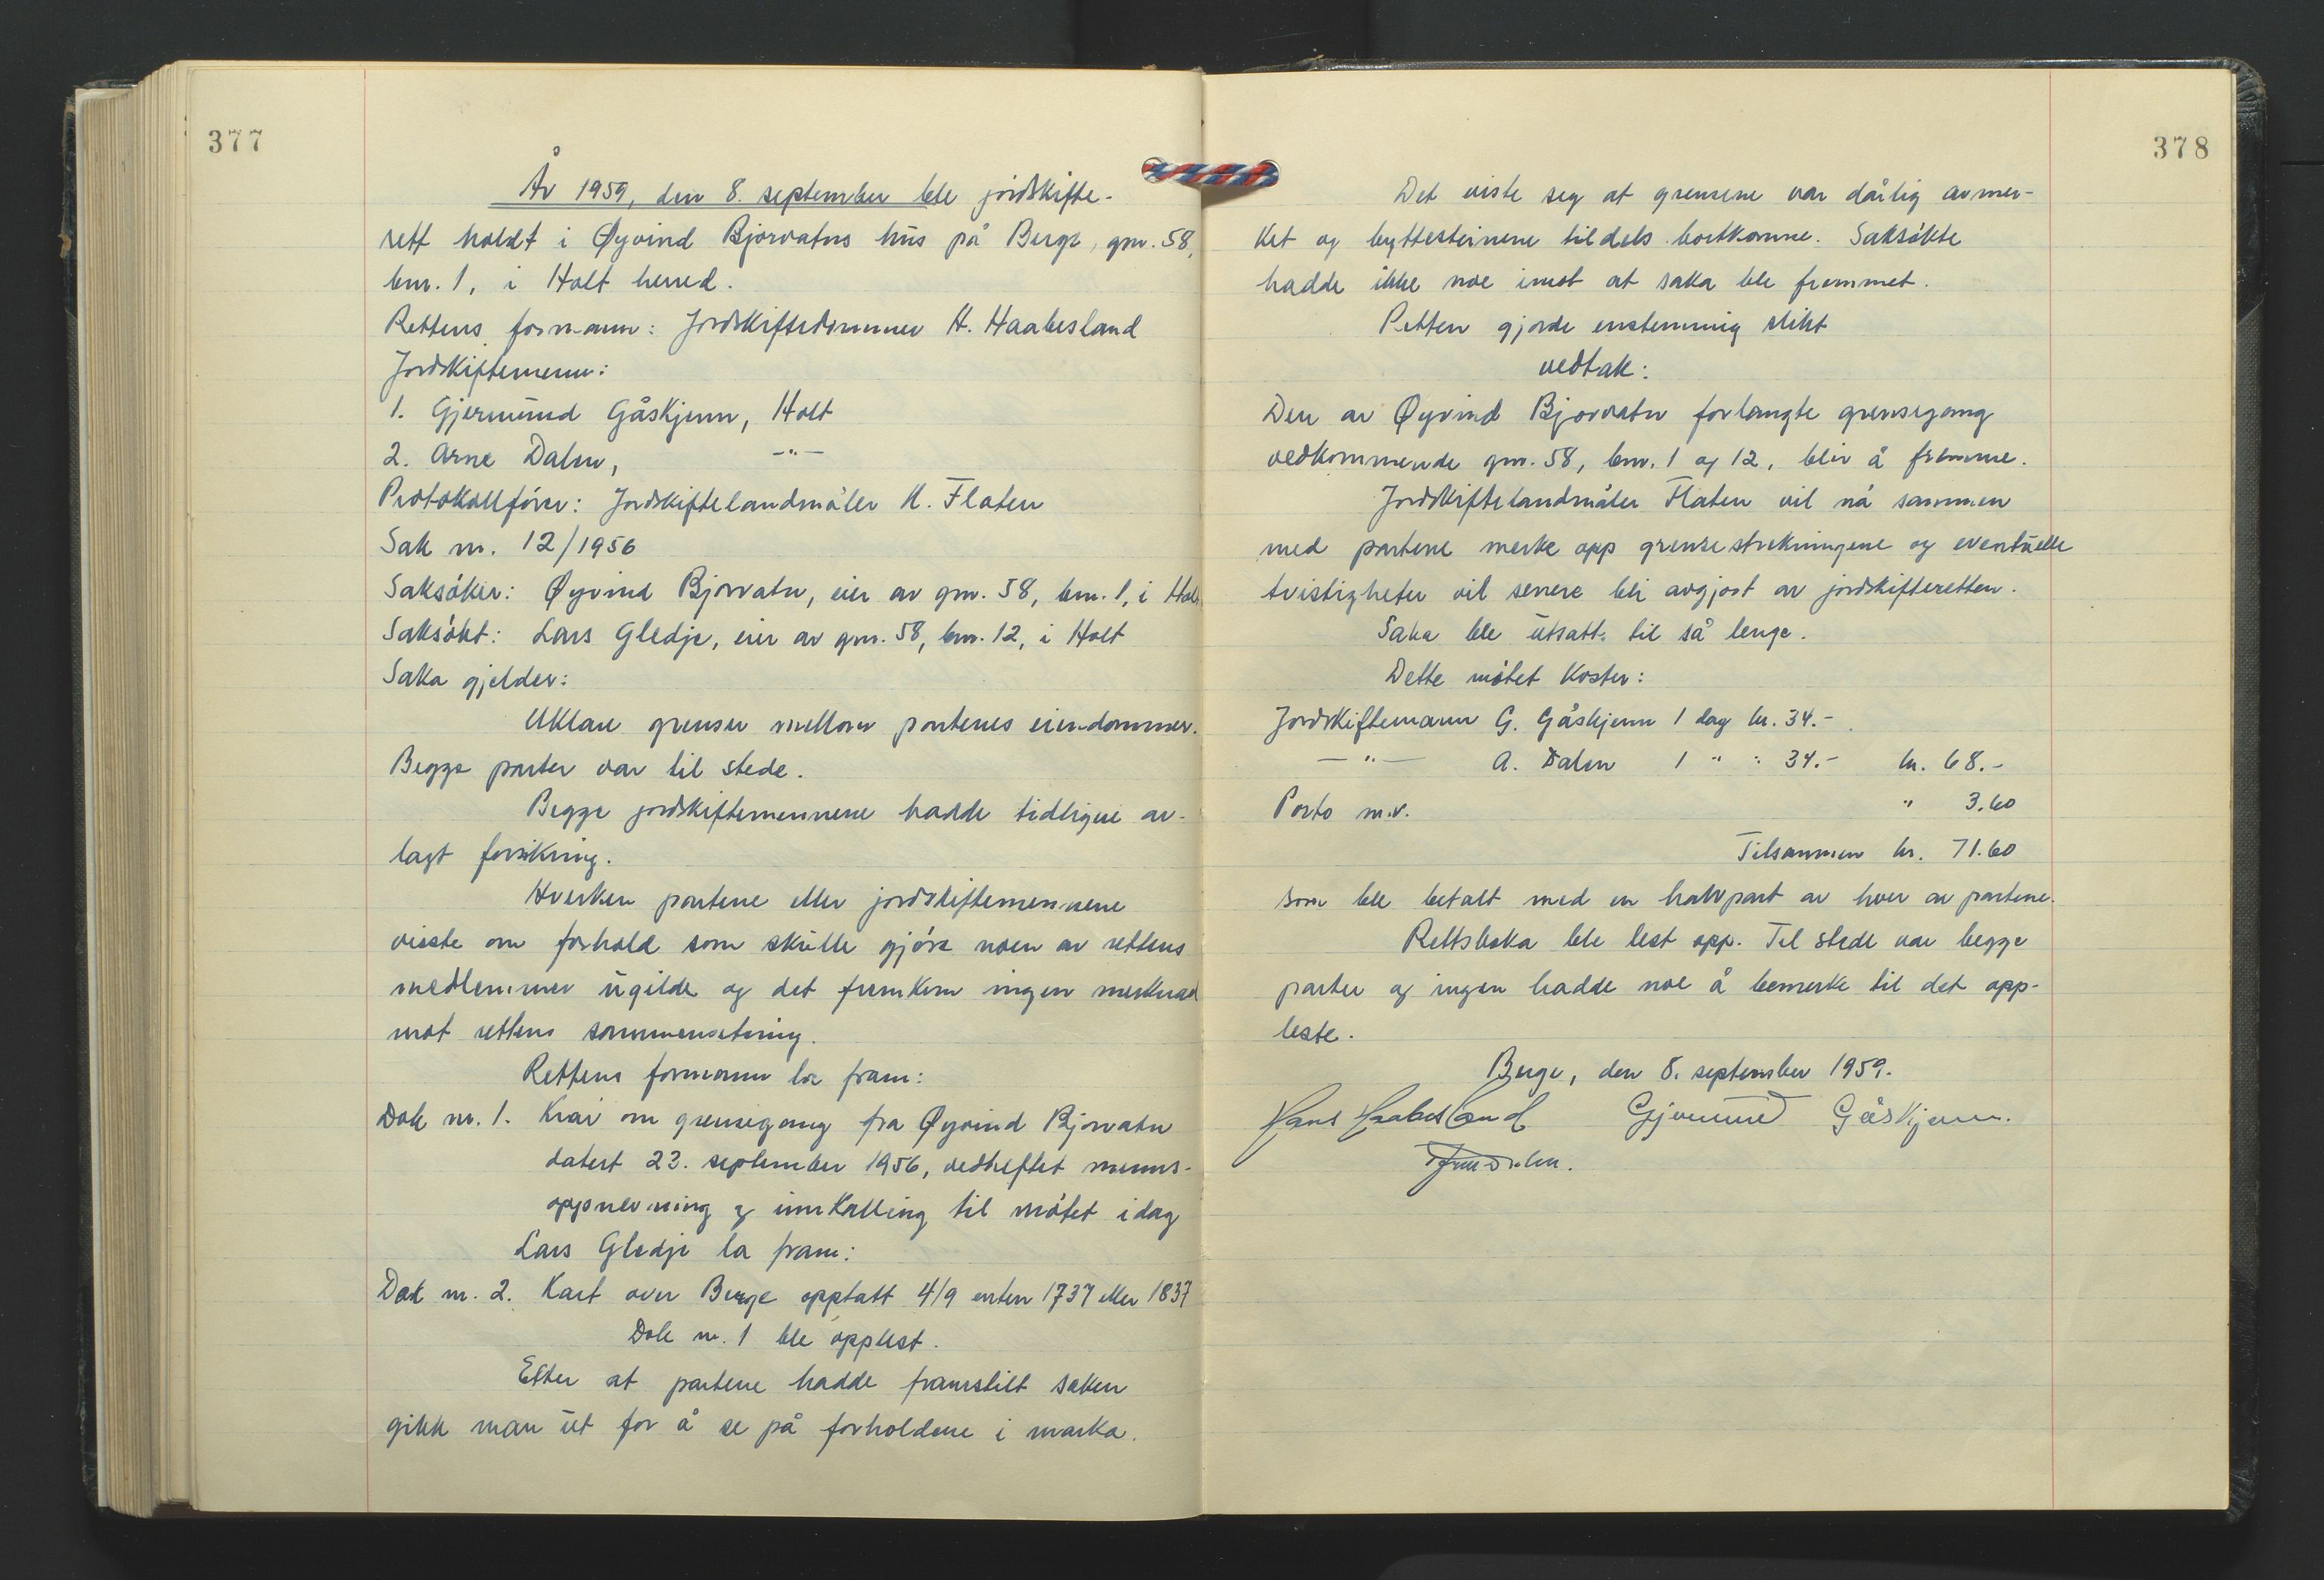 377
År 1959, den 8. september ble jordskifte-
rett holdt i Øyvind Bjorvatns hus på Berge, gnr. 58,
bnr. 1, i Holt herred.
Rettens formann: Jordskiftedommer H. Haabesland
Jordskiftemenn:
1. Gjermund Gåskjenn, Holt
2. Arne Dalen, -"-
Protokollfører: Jordskiftelandmåler K. Flaten
Sak nr. 12/1956
Saksøker: Øyvind Bjorvatn, eier av gnr. 58, bnr. 1, i Holt
Saksøkt: Lars Gledje, eier av gnr. 58, bnr. 12, i Holt
Saka gjelder:
Uklare grenser mellom partenes eiendommer.
Begge parter var til stede.
Begge jordskiftemennene hadde tidligere av-
lagt forsikring.
Hverken partene eller jordskiftemennene
visste om forhold som skulle gjøre noen av rettens
medlemmer ugilde og det fremkom ingen merknad
mot rettens sammensetning.
Rettens formann la fram:
Dok nr. 1. Krav om grensegang fra Øyvind Bjorvatn
datert 23. september 1956, vedheftet manns-
oppnevning og innkalling til møtet idag
Lars Gledje la fram:
Dok nr. 2. Kart over Berge opptatt 4/9 enten 1737 eller 1837
Dok nr. 1 ble opplest.
Efter at partene hadde framstilt saken
gikk man ut for å se på forholdene i marka.
378
Det viste seg at grensene var dårlig avmer-
ket og byttesteinene tildels bortkomne. Saksøkte
hadde ikke noe imot at saka ble fremmet.
Retten gjorde enstemmig slikt
vedtak:
Den av Øyvind Bjorvatn forlangte grensegang
vedkommende gnr. 58, bnr. 1 og 12, blir å fremme.
Jordskiftelandmåler Flaten vil nå sammen
med partene merke opp grensestrekningene og eventuelle
tvistigheter vil senere bli avgjort av jordskifteretten.
Saka ble utsatt til så lenge.
Dette møtet koster:
Jordskiftemann G. Gåskjenn 1 dag kr. 34.-
-"- A. Dalen 1 " " 34.- kr. 68.-
Porto m.v. " 3.60
Tilsammen kr. 71.60
som ble betalt med en halvpart av hver av partene.
Rettsboka ble lest opp. Til stede var begge
parter og ingen hadde noe å bemerke til det opp-
leste.
Berge, den 8. september 1959.
Hans Haabesland Gjermund Gåskjenn.
Arne Dalen.